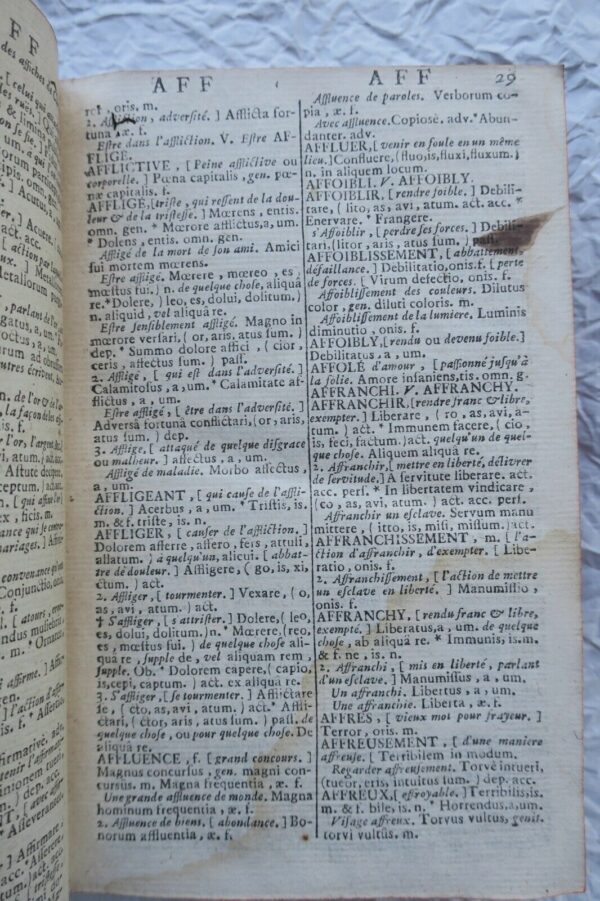 F F
des affiches
[celui qui
AFF
rer, oris. m.
2. adverſité. ] Afflicta for-
tuna, æ. f.
Eſtre dans l'affliction. V. Eſtre AF-
FLIGÉ.
AFFLICTIVE, [Peine afflictive ou
corporelle. ] Pœna capitalis, gen. pœ-
næ capitalis. f.
AFFLIGÉ, [triſte, qui reſſent de la dou-
leur & de la triſteſſe. ] Mœrens, entis.
omn. gen. * Mœrore afflictus, a, um.
* Dolens, entis. omn. gen.
Affligé de la mort de ſon ami. Amici
ſui mortem mœrens.
Eſtre affligé. Mœrere, mœreo, es,
mœſtus ſui.) n. de quelque choſe, aliquâ
re. * Dolere, ) leo, es, dolui, dolitum. )
n. aliquid, vel aliquâ re.
Eſtre ſenſiblement affligé. Magno in
mœrore verſari, ( or, aris, atus ſum. )
dep. * Summo dolore affici, ( cior,
ceris, affectus ſum. ) paſſ.
2. Affligé, [ qui eſt dans l'adverſité. ]
Calamitoſus, a, um. * Calamitate af-
flictus, a, um.
Eſtre affligé, [ être dans l'adverſité. ]
Adversâ fortunâ conflictari, (or, aris,
atus ſum. ) dep.
3. Affligé, [ attaqué de quelque diſgrace
ou malheur. ] affectus, a, um.
Affligé de maladie. Morbo affectus,
a, um.
AFFLIGEANT, [qui cauſe de l'affli-
ction. ] Acerbus, a, um. * Triſtis, is.
m. & f. triſte, is. n.
AFFLIGER, [cauſer de l'affliction. ]
Dolorem afferre, affero, fers, attuli,
allatum. ) à quelqu'un, alicui. [ abbat-
tre de douleur. ] Affligere, ( go, is, xi,
ctum. ) act.
2. Affliger, [ tourmenter. ] Vexare, ( o,
as, avi, atum. ) act.
† S'affliger, [ s'attriſter. ] Dolere, ( leo,
es, dolui, dolitum. ) n. * Mœrere, (reo,
es, mœſtus ſui. ) de quelque choſe ali-
quâ re, ſupple de, vel aliquam rem,
ſupple. Ob. * Dolorem capere, ( capio,
is, cepi, captum. ) act. ex aliqua re.
3. S'affliger, [ ſe tourmenter. ] Afflictare
ſe, ( cto, as, avi, atum. ) act. * Affli-
ctari, ( ctor, aris, atus ſum. ) paſſ. de
quelque choſe, ou pour quelque choſe. De
aliquâ re.
AFFLUENCE, f. [ grand concours. ]
Magnus concurſus, gen. magni con-
curſus. m. Magna frequentia, æ. f.
Une grande affluence de monde. Magna
hominum frequentia, æ. f.
2. Affluence de biens, [ abondance. ] Bo-
norum affluentia, æ. f.
AFF 29
Affluence de paroles. Verborum co-
pia, æ. f.
Avec affluence. Copiosè. adv. * Abun-
danter. adv.
AFFLUER, [ venir en foule en un même
lieu. ] Confluere, (fluo, is, fluxi, fluxum. )
n. in aliquem locum.
AFFOIBLI. V. AFFOIBLY.
AFFOIBLIR, [ rendre foible. ] Debili-
tare, ( lito, as, avi, atum. act. acc. *
Enervare. * Frangere.
s'Affoiblir, [ perdre ſes forces. ] Debili-
tari, (litor, aris, atus ſum. ) paſſ.
AFFOIBLISSEMENT, [ abbattement,
défaillance. ] Debilitatio, onis. f. [ perte
de forces. ] Virum defectio, onis. f.
Affoibliſſement des couleurs. Dilutus
color, gen. diluti coloris. m.
Affoibliſſement de la lumiere. Luminis
diminutio, onis. f.
AFFOIBLY, [ rendu ou devenu foible. ]
Debilitatus, a, um.
AFFOLÉ d'amour, [ paſſionné juſqu'à
la folie. Amore inſaniens, tis. omn. g.
AFFRANCHI. V. AFFRANCHY.
AFFRANCHIR, [rendre franc & libre,
exempter. ] Liberare, ( ro, as, avi, a-
tum. ) act. * Immunem facere, ( cio,
is, feci, factum. ) act. quelqu'un de quel-
que choſe. Aliquem aliquâ re.
2. Affranchir, [ mettre en liberté, délivrer
de ſervitude. ] A ſervitute liberare. act.
acc. perſ. * In libertatem vindicare,
( co, as, avi, atum. ) act. acc. perſ.
Affranchir un eſclave. Servum manu
mittere, ( itto, is, miſi, miſſum. ) act.
AFFRANCHISSEMENT, m. [ l'a-
ction d'affranchir, d'exempter. ] Libe-
ratio, onis. f.
2. Affranchiſſement, [ l'action de mettre
un eſclave en liberté. ] Manumiſſio,
onis. f.
AFFRANCHY, [ rendu franc & libre,
exempté. ] Liberatus, a, um. de quelque
choſe, ab aliquâ re. * Immunis, is. m.
& f. ne, is. n.
2. Affranchi, [ mis en liberté, parlant
d'un eſclave. ] Manumiſſus, a, um.
Un affranchi. Libertus, a, um.
Une affranchie. Liberta, æ. f.
AFFRES, [ vieux mot pour frayeur. ]
Terror, oris. m.
AFFREUSEMENT, [ d'une maniere
affreuſe. ] Terribilem in modum.
Regarder affreuſement. Torvè intueri,
(tueor, eris, intuitus ſum. ) dep. acc.
AFFREUX, [ effroyable. ] Terribilis, is.
m. & f. bile, is. n. * Horrendus, a, um.
Viſage affreux. Torvus vultus, genit.
torvi vultûs. m.